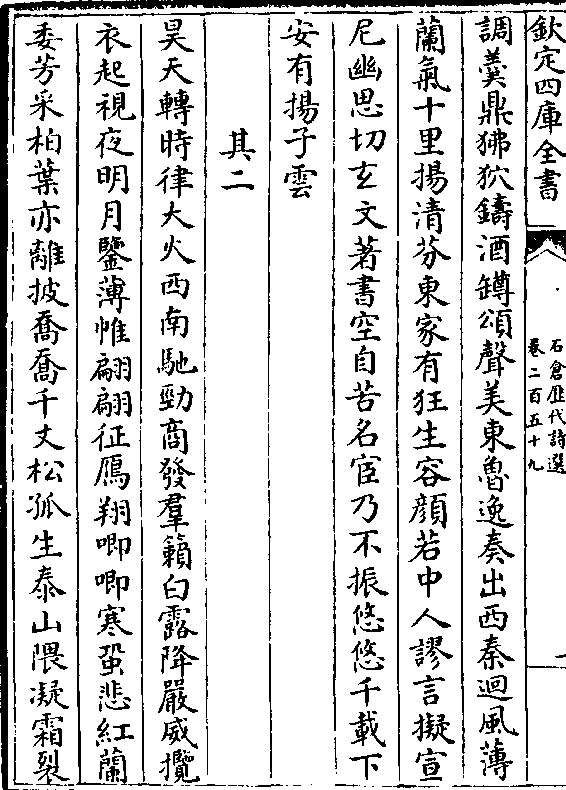 欽定四庫全書
石倉歷代詩選
卷二百五十九
一
調羹鼎狒狖鑄酒罇頌聲美東魯逸奏出西秦迴風薄
蘭氣十里揚清芬東家有狂生容顔若中人謬言擬宣
尼幽思切玄文著書空自苦名宦乃不振悠悠千載下
安有揚子雲
其二
昊天轉時律大火西南馳勁商發羣籟白露降嚴威攬
衣起視夜明月鑒薄帷翩翩征鴈翔喞喞寒蛩悲紅蘭
委芳采柏葉亦離披喬喬千丈松孤生泰山隈凝霜裂